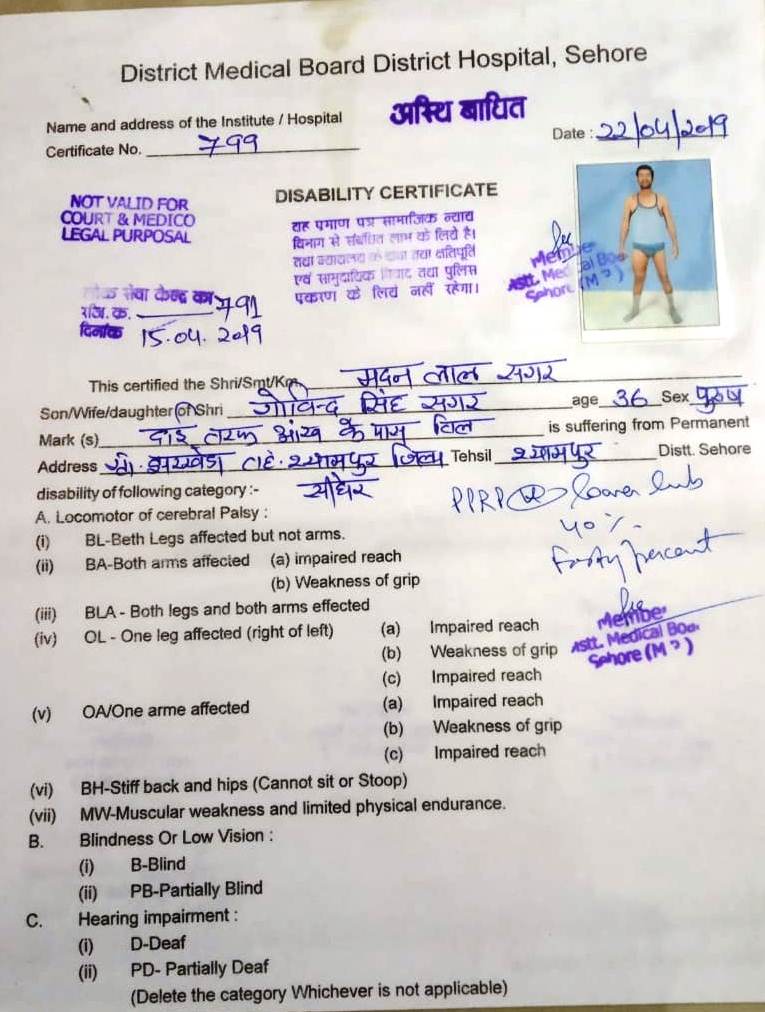 District Medical Board District Hospital, Sehore
अस्थि बाधित
Name and address of the Institute / Hospital
Date : 22/04/2019
Certificate No. 799
NOT VALID FOR
COURT & MEDICO
LEGAL PURPOSAL
DISABILITY CERTIFICATE
यह प्रमाण पत्र सामाजिक न्याय
विभाग से संबंधित लाभ के लिये है।
तथा न्यायालय के दावा तथा क्षतिपूर्ति
एवं सामुदायिक विवाद तथा पुलिस
प्रकरण के लिये नहीं रहेगा।
Member
Astt. Medical Boa
Sehore (M ? )
लोक सेवा केन्द्र का
रजि. क्र. 791
दिनांक 15.04.2019
This certified the Shri/Smt/Km. मदन लाल सगर
Son/Wife/daughter of Shri गोविन्द सिंह सगर age 36 Sex पुरुष
Mark (s) दाई तरफ आंख के पास तिल is suffering from Permanent
Address तह. श्यामपुर जिला Tehsil श्यामपुर Distt. Sehore
disability of following category :- सीहोर
PPRP lower limb
40 %
Forty percent
A. Locomotor of cerebral Palsy :
(i) BL-Beth Legs affected but not arms.
(ii) BA-Both arms affecied (a) impaired reach
(b) Weakness of grip
(iii) BLA - Both legs and both arms effected
(iv) OL - One leg affected (right of left) (a) Impaired reach
(b) Weakness of grip
(c) Impaired reach
Member
Astt. Medical Boa
Sehore (M ? )
(v) OA/One arme affected (a) Impaired reach
(b) Weakness of grip
(c) Impaired reach
(vi) BH-Stiff back and hips (Cannot sit or Stoop)
(vii) MW-Muscular weakness and limited physical endurance.
B. Blindness Or Low Vision :
(i) B-Blind
(ii) PB-Partially Blind
C. Hearing impairment :
(i) D-Deaf
(ii) PD- Partially Deaf
(Delete the category Whichever is not applicable)